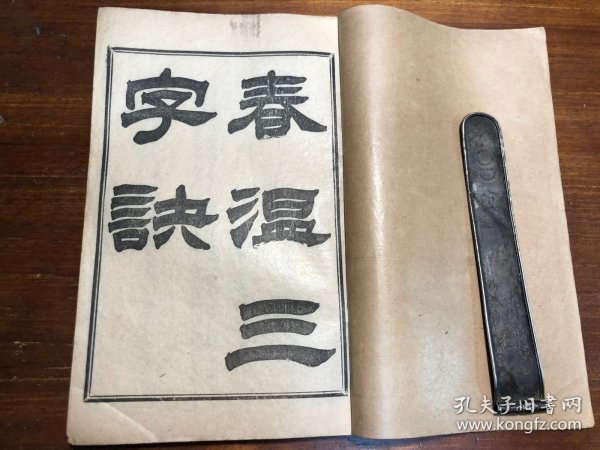 春温三
字訣
孔夫子旧书网
www.kongfz.com